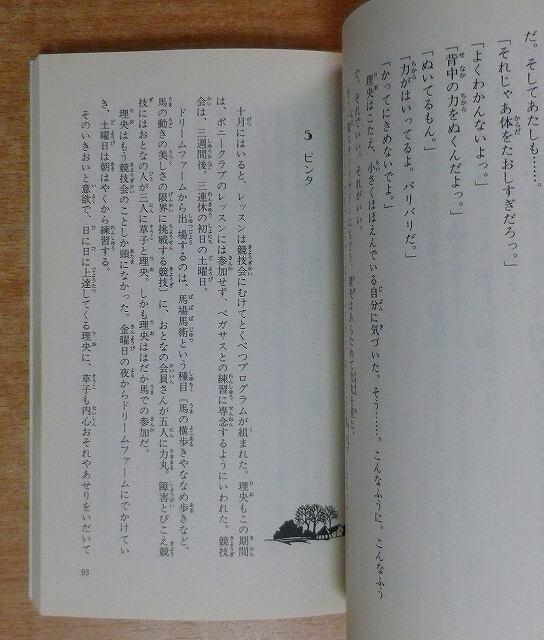 だ。そしてあたしも……。
「それじゃあ体をたおしすぎだろっ。」
「よくわかんないよっ。」
「背中の力をぬくんだよっ。」
「ぬいてるもん。」
「力がはいってるよ。バリバリだ。」
「かってにきめないでよ。」
理央はこたえ、小さくほほえんでいる自分に気づいた。そう……。こんなふうに。こんなふう
や、それでいい。それがいい。
5 ピンタ
十月にはいると、レッスンは競技会にむけてとくべつプログラムが組まれた。理央もこの期間
は、ポニークラブのレッスンには参加せず、ペガサスとの練習に専念するようにいわれた。競技
会は、三週間後。三連休の初日の土曜日。
ドリームファームから出場するのは、馬場馬術という種目〔馬の横歩きやななめ歩きなど、
馬の動きの美しさの限界に挑戦する競技〕に、おとなの会員さんが五人に力丸。障害とびこえ競
技にはおとなの人が三人に草子と理央。しかも理央ははだか馬での参加だ。
理央はもう競技会のことしか頭になかった。金曜日の夜からドリームファームにでかけてい
き、土曜日は朝はやくから練習する。
そのいきおいと意欲で、日に日に上達してくる理央に、草子も内心おそれやあせりをいだいて
93